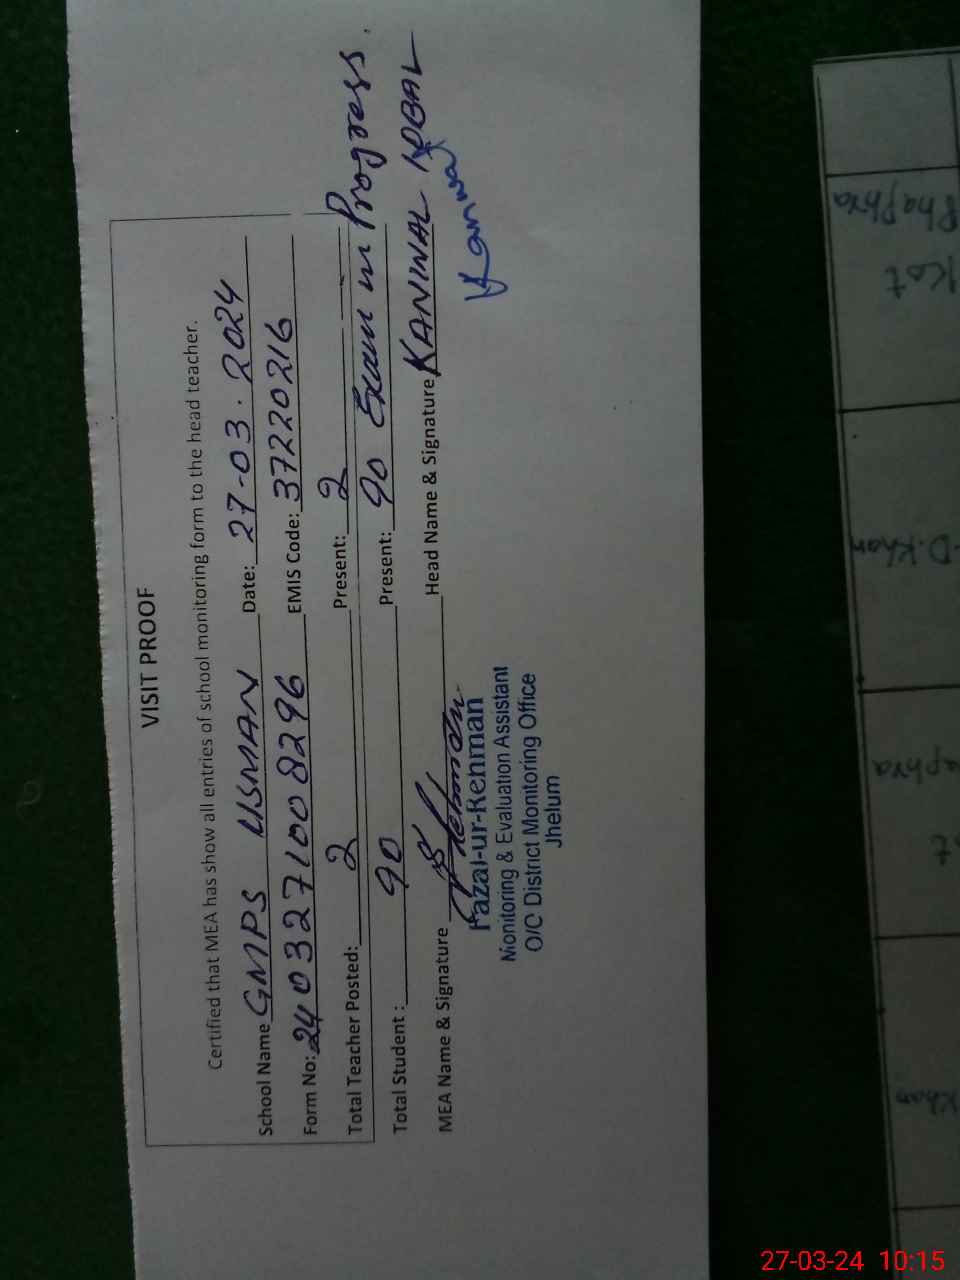 VISIT PROOF
Certified that MEA has show all entries of school monitoring form to the head teacher.
School Name GMPS USMAN Date: 27-03-2024
Form No: 2403271008296 EMIS Code: 37220216
Total Teacher Posted: 2 Present: 2
Total Student : 90 Present: 90 Exam in Progress.
MEA Name & Signature Rehman Head Name & Signature KANWAL IQBAL
Kanwal
Fazal-ur-Rehman
Monitoring & Evaluation Assistant
O/C District Monitoring Office
Jhelum
Phaphra
Kot
D.Khan
aphra
Khan
27-03-24 10:15